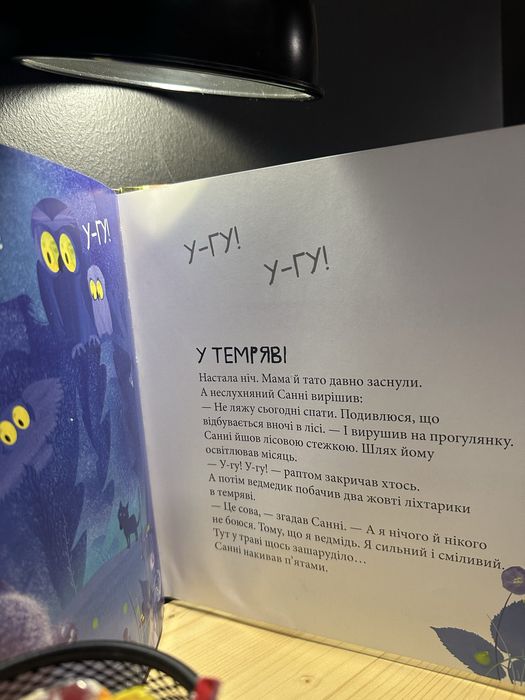 У-ГУ!
У-ГУ!
У-ГУ!
У ТЕМРЯВІ
Настала ніч. Мама й тато давно заснули.
А неслухняний Санні вирішив:
— Не ляжу сьогодні спати. Подивлюся, що
відбувається вночі в лісі. — І вирушив на прогулянку.
Санні йшов лісовою стежкою. Шлях йому
освітлював місяць.
— У-гу! У-гу! — раптом закричав хтось.
А потім ведмедик побачив два жовті ліхтарики
в темряві.
— Це сова, — згадав Санні. — А я нічого й нікого
не боюся. Тому, що я ведмідь. Я сильний і сміливий.
Тут у траві щось зашаруділо...
Санні накивав п'ятами.